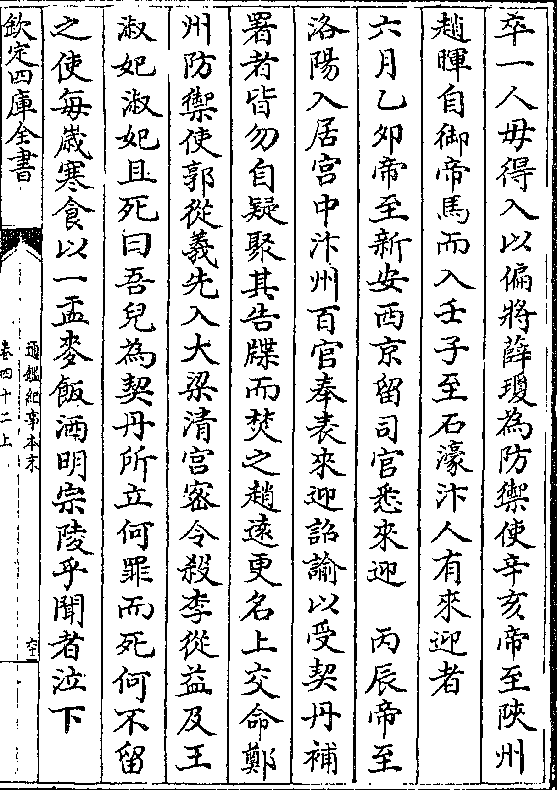 卒一人毋得入以偏將薛瓊為防禦使辛亥帝至陜州
趙暉自御帝馬而入壬子至石濠汴人有來迎者
六月乙夘帝至新安西京留司官悉來迎　丙辰帝至
洛陽入居宫中汴州百官奉表來迎詔諭以受契丹補
署者皆勿自疑聚其告牒而焚之趙逺更名上交命鄭
州防禦使郭從義先入大梁清宫宻令殺李從益及王
淑妃淑妃且死曰吾兒為契丹所立何罪而死何不留
之使每歲寒食以一盂麥飯洒明宗陵乎聞者泣下
欽定四庫全書
通鑑紀事本末
卷四十二上